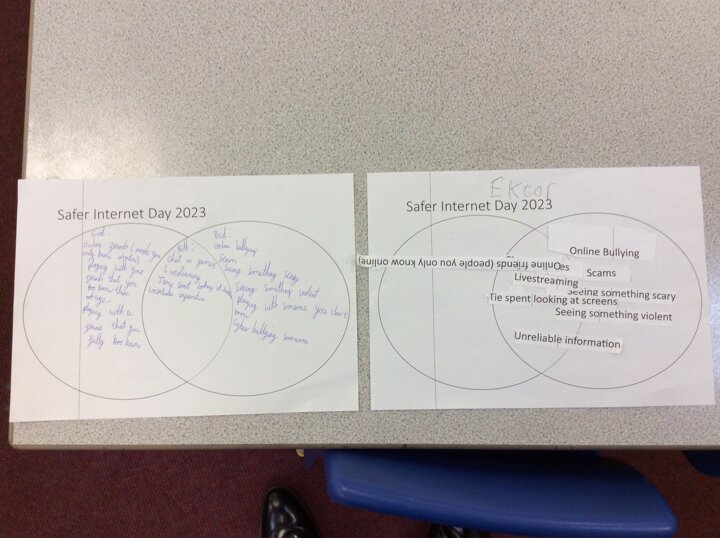 Safer Internet Day 2023
Good:
online friends (people you
only know online)
playing with your
friends that you
know
playing with a
friend that you
fully know
Both:
chat in games
Livestreaming
Time spent looking at
unreliable information
Bad:
online bullying
Scam
Seeing something scary
Seeing something violent
Playing with someone you don't
Cyber bullying someone
Ektor
Safer Internet Day 2023
Online Bullying
Online friends (people you only know online)
Scams
Livestreaming
Seeing something scary
Tie spent looking at screens
Seeing something violent
Unreliable information